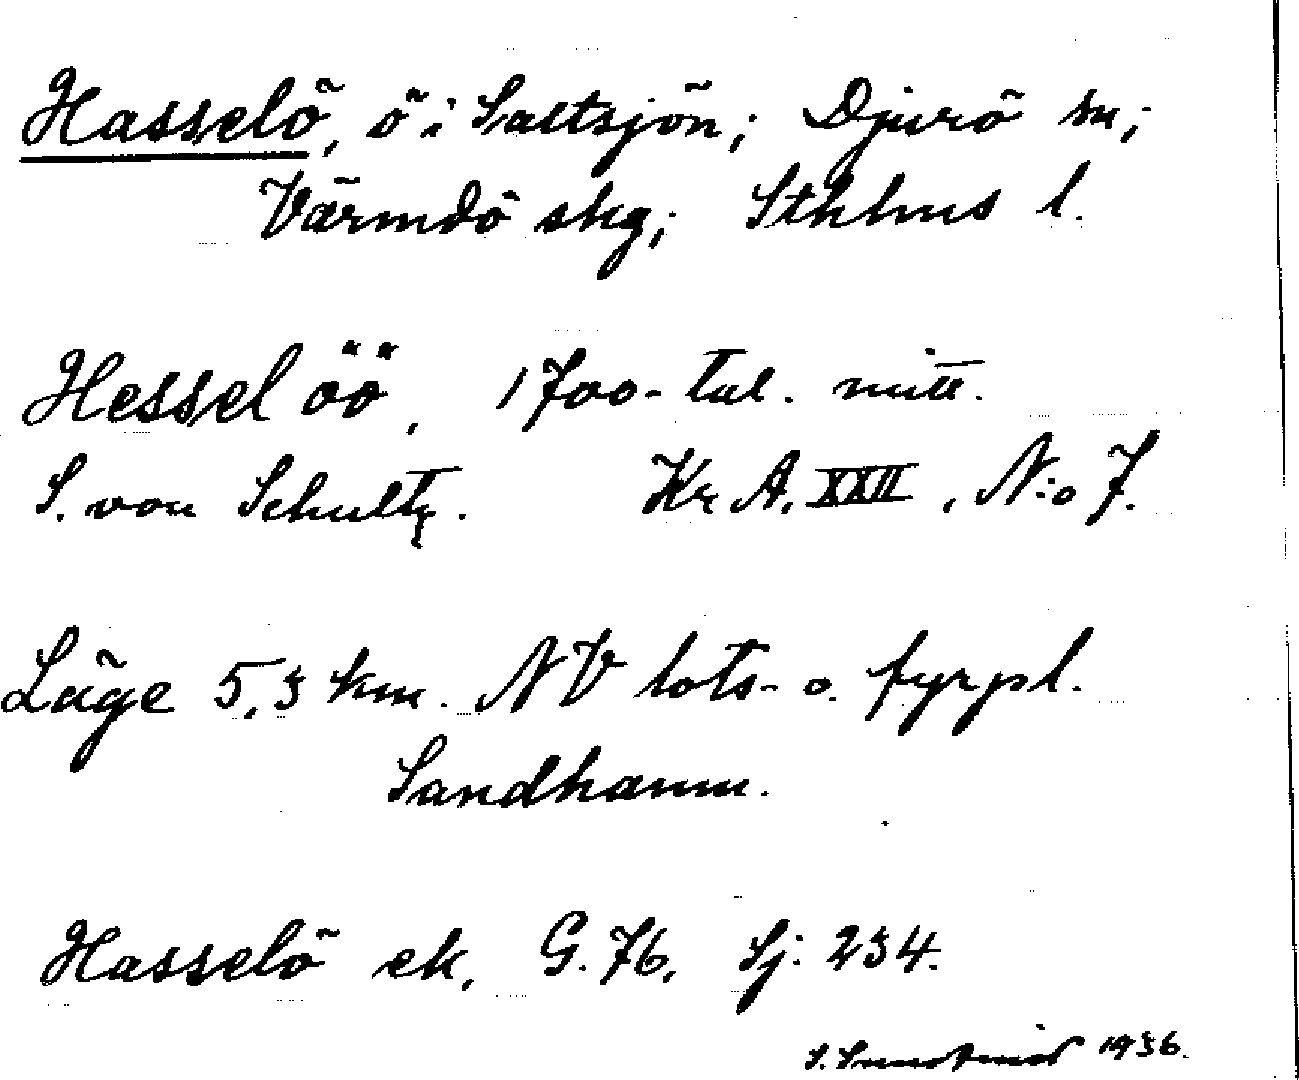 Hasselö, ö i Saltsjön; Djurö sn;
Värmdö skg; Sthlms l.
Hessel öö, 1700-tal. mitt.
S. von Schultz. Kr. A. XXII, N:o 7.
Läge 5,3 km. NV lots- o. fyrpl.
Sandhamn.
Hasselö ek. G. 76, Sj: 234.
S. 1936.